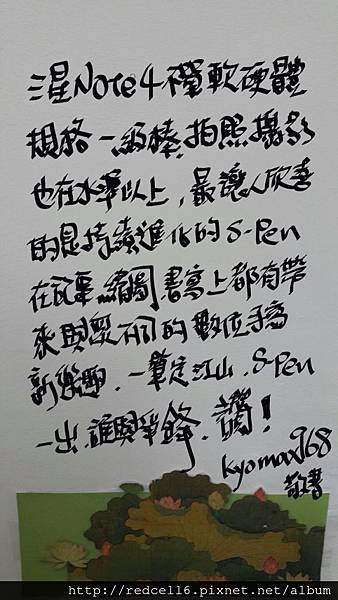 三星Note4不僅軟硬體
規格一級棒,拍照攝影
也在水準以上,最讓人欣喜
的是持續進化的S-Pen
在記事繪圖書寫上都有帶
來與眾不同的數位手寫
新樂趣.一筆定江山.S-Pen
一出.誰與爭鋒.讚!
kyomax968
敬書
http://redcell6.pixnet.net/album